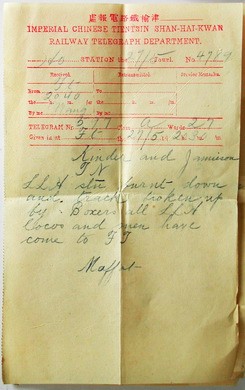 津榆鐵路電報處
IMPERIAL CHINESE TIENTSIN SHAN-HAI-KWAN
RAILWAY TELEGRAPH DEPARTMENT.
STATION No. 4789
Received. Retransmitted. Service Remarks.
From
At 20 40
By me Wang By me
TELEGRAM No. Class Words 27
Given in at 27/5
Kinder and Jamieson
TN
LLA stn burnt down
and track broken up
by Boxers all LLA
locos and men have
come to FT
Moffat